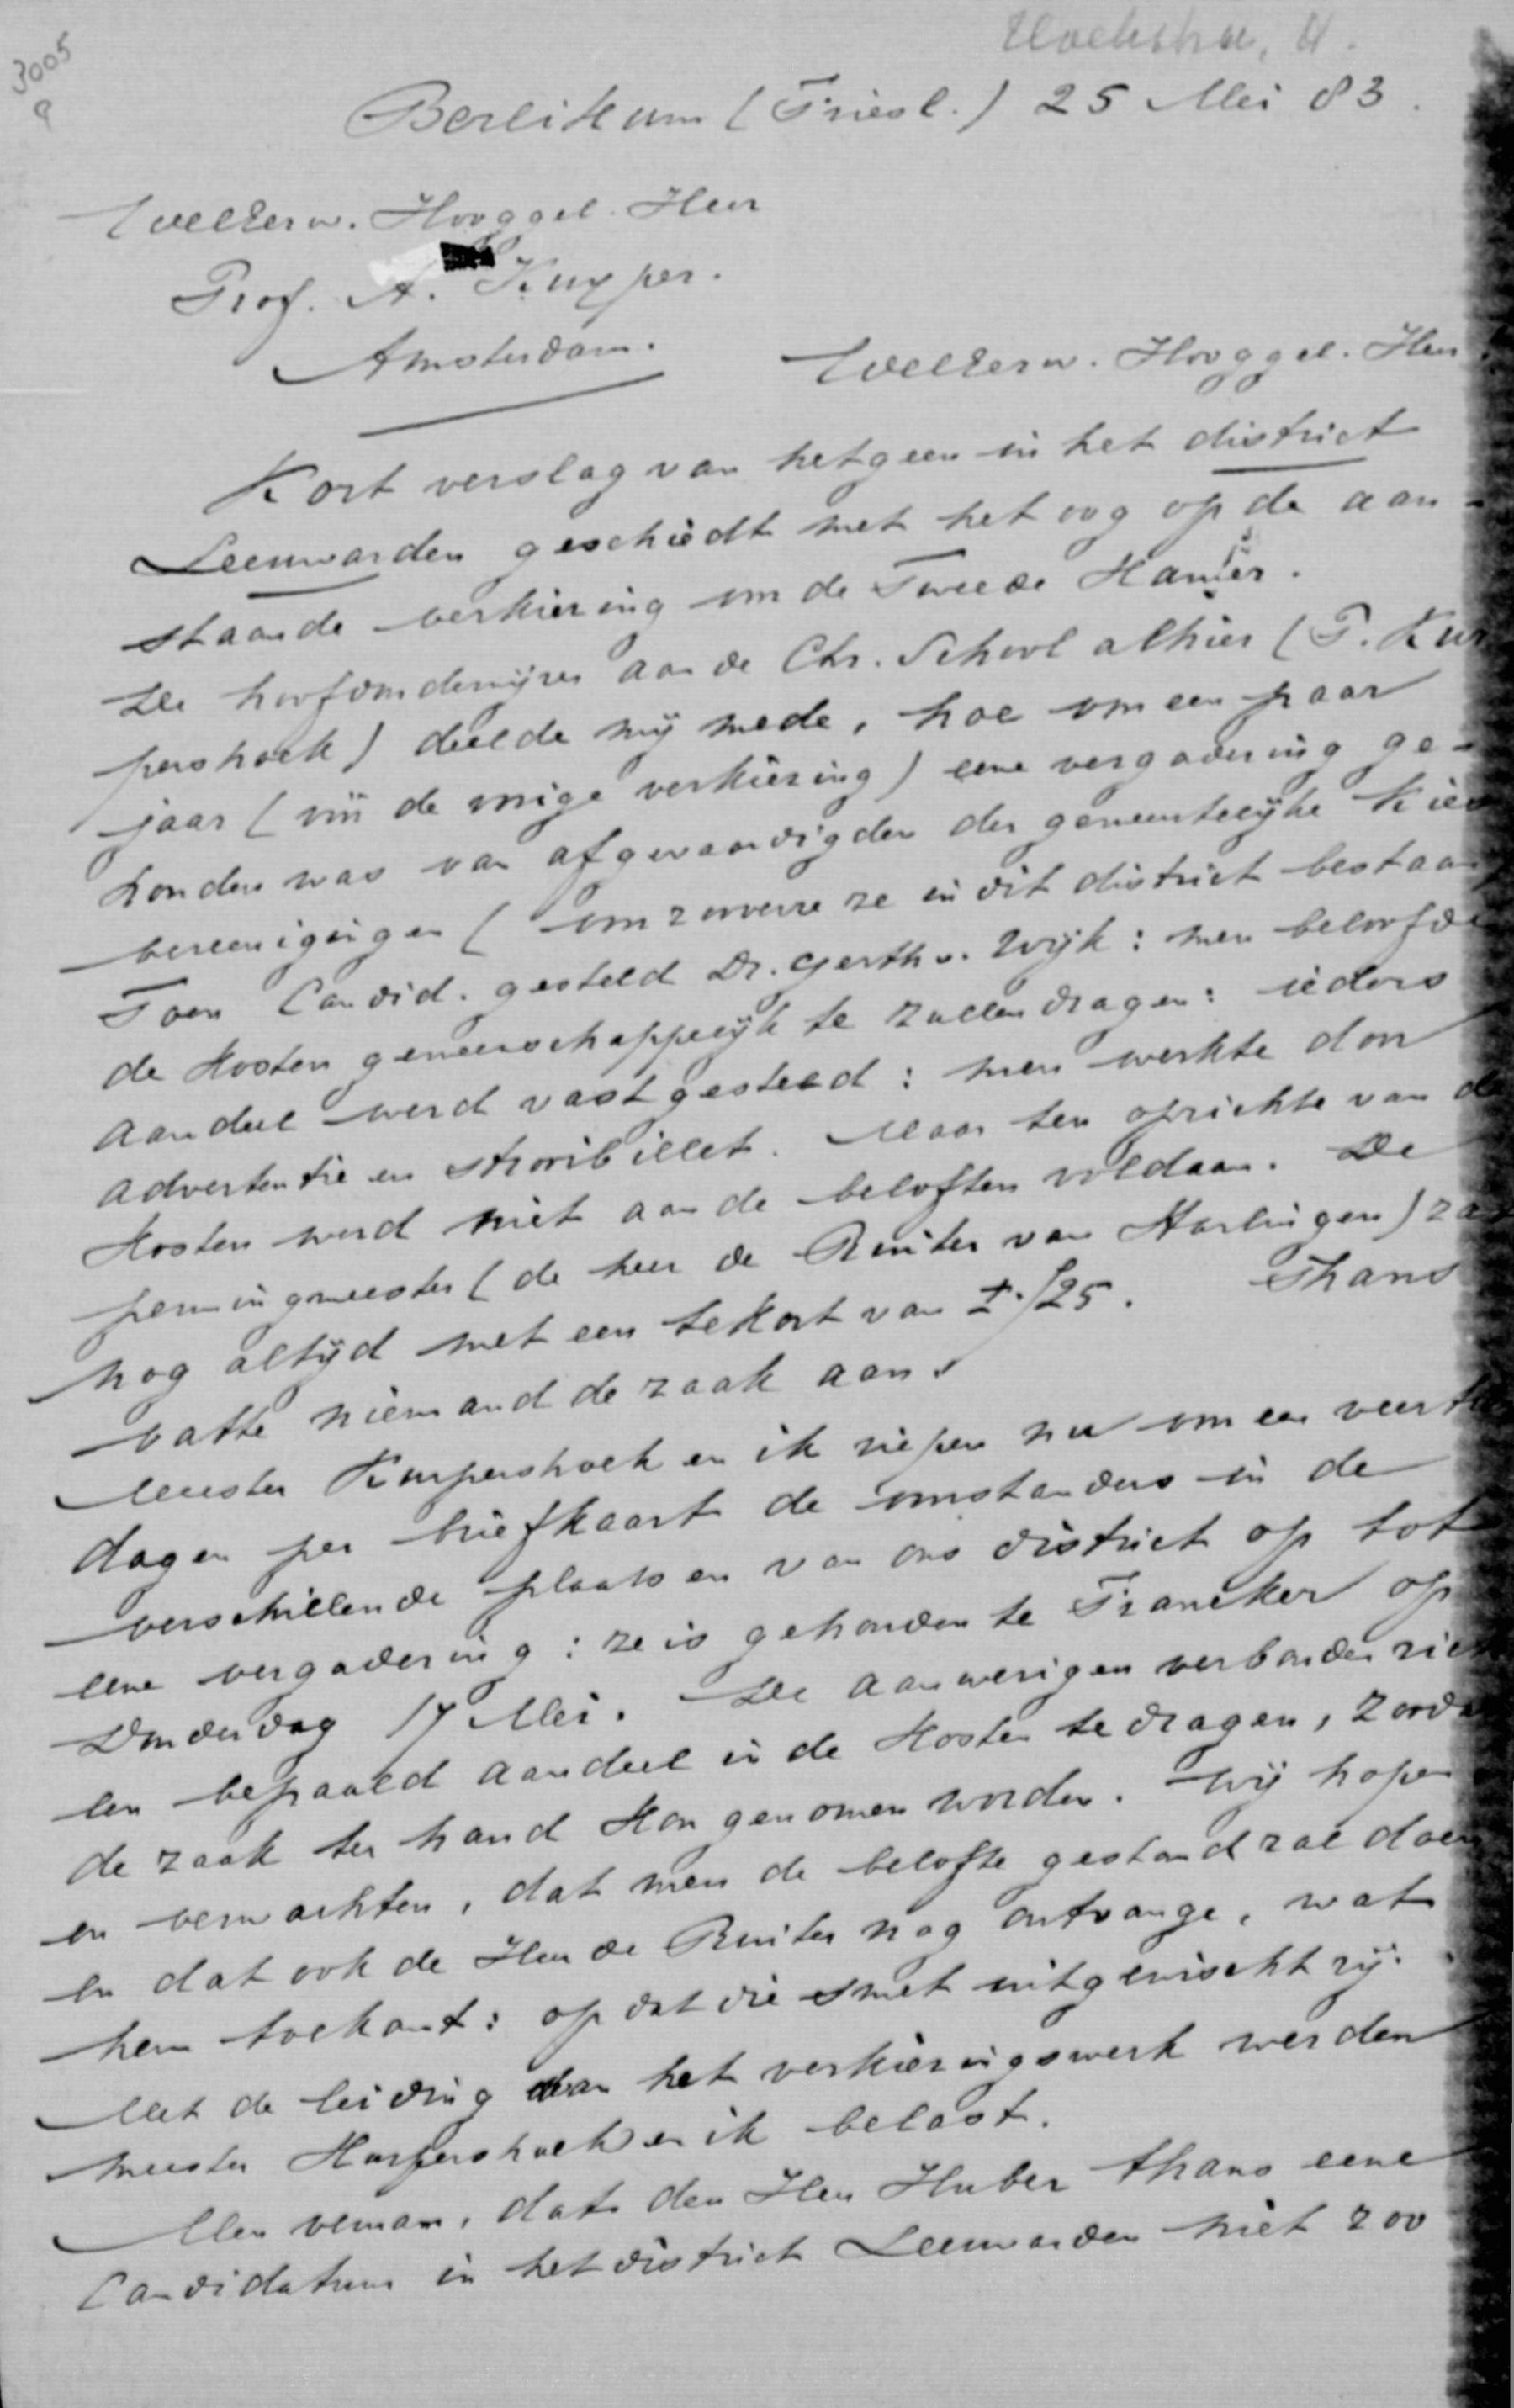 3005
a
Hoekstra, H.
Berlikum (Friesl.) 25 Mei 83.
WelEerw. Hooggel. Heer
Prof. A. Kuyper.
Amsterdam.
WelEerw. Hooggel. Heer
Kort verslag van hetgeen in het district
Leeuwarden geschiedt met het oog op de aan-
staande verkiezing voor de Tweede Kamer.
De hoofdonderwijzer aan de Chr. School alhier (P. Kur
pershoek) deelde mij mede, hoe voor een paar
jaar (vóór de vorige verkiezing) eene vergadering ge-
houden was van afgevaardigden der gemeentelijke Kies
vereenigingen (voor zooverre ze in dit district bestaan)
Toen Candid. gesteld Dr. Gerth v. Wijk: men beloofde
de kosten gemeenschappelijk te zullen dragen: ieders
aandeel werd vastgesteld: men werkte door
advertentie en strooibillet. Maar ten opzichte van de
kosten werd niet aan de beloften voldaan. De
penningmeester (de heer de Ruiter van Harlingen) zat
nog altijd met een tekort van ± f25. Thans
vatte niemand de zaak aan.
Meester Kurpershoek en ik riepen nu voor een veertien
dagen per briefkaart de voorstanders in de
verschillende plaatsen van ons district op tot
eene vergadering: ze is gehouden te Franeker op
Donderdag 17 Mei. De aanwezigen verbonden zich
een bepaald aandeel in de kosten te dragen, zoodat
de zaak ter hand kon genomen worden. Wij hopen
en verwachten, dat men de belofte gestand zal doen
en dat ook de Heer de Ruiter nog ontvange, wat
hem toekomt: opdat die smet uitgewischt zij.
Met de leiding van het verkiezingswerk werden
meester Kurpershoek en ik belast.
Men vernam, dat den Heer Huber thans eene
Candidatuur in het district Leeuwarden niet zoo